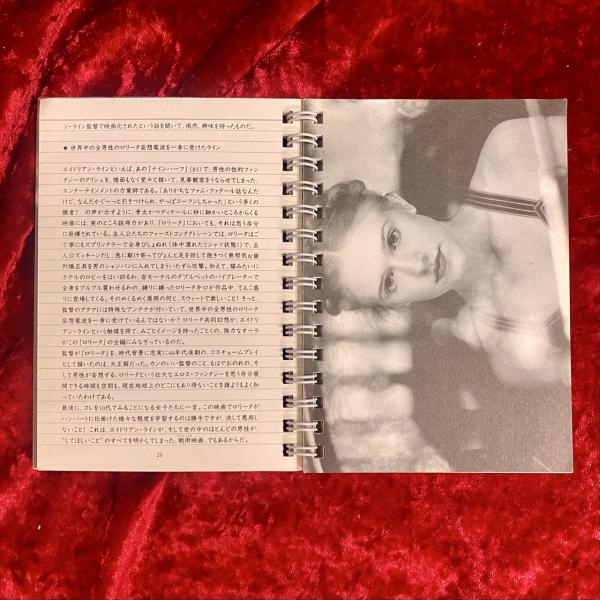 ン・ライン監督で映画化されたという話を聞いて、俄然、興味を持ったものだ。
♥ 世界中の全男性のロリータ妄想電波を一身に受けたライン
エイドリアン・ラインといえば、あの『ナインハーフ』('85)で、男性の性的ファン
タジーのクリシェを、憶面もなく堂々と描いて、見事観客をうならせてしまった、
エンターテインメントの力業師である。「ありがちなファム・ファタール話なんだ
けど、なんだかぐーっと引きつけられ、やっぱコーフンしちゃった」という多くの
識者? の声が示すように、骨太かつディテールに妙に細かいところからくる
映像には、実のところ説得力があり、『ロリータ』においても、それは思う存分
に発揮されている。主人公たちのファーストコンタクトシーンでは、ロリータはご
丁寧にもスプリンクラーで全身びしょぬれ(体中濡れたTシャツ状態!)で、主
人公ズッキーンだし、急に駆け寄ってぴょんと足を回して抱きつく無邪気な
列矯正具を男のシャンパンに入れてしまういたずら攻撃。加えて、猫みたいに
ホテルのロビーをはい回るわ、安モーテルのダブルベットのバイブレーターで
全身をプルプル震わせるわの、練りに練ったロリータギロが作品中、てんこ盛
りに登場してくる。そのめくるめく展開の何と、スウィートで激しいこと!きっと、
監督のアタマには特殊なアンテナが付いていて、世界中の全男性のロリータ
妄想電波を一身に受けているんではないか? ロリータ共同幻想が、エイドリ
アン・ラインという触媒を得て、みごとイメージを持ったごとくの、強力なオーラ
がこの『ロリータ』の全編にみなぎっているのだ。
監督が『ロリータ』を、時代背景に忠実に40年代後期の、コスチュームプレイ
として描いたのは、大正解だった。カンのいい監督のこと、もはやおのれの、そ
して男性が妄想する、ロリータという壮大なエロス・ファンタジーを思う存分展
開できる時間も空間も、現在地球上のどこにもあり得ないことを誰よりもよく知
っていたわけである。
最後に、コレを10代でみることになる女子たちに一言。この映画でロリータが
ハンバートに仕掛けた様々な態度を学習するのは勝手ですが、決して悪用し
ないこと! これは、エイドリアン・ラインが、そして世の中のほとんどの男性が、
"してほしいこと"のすべてを明かしてしまった、戦術映画、でもあるからだ。
26